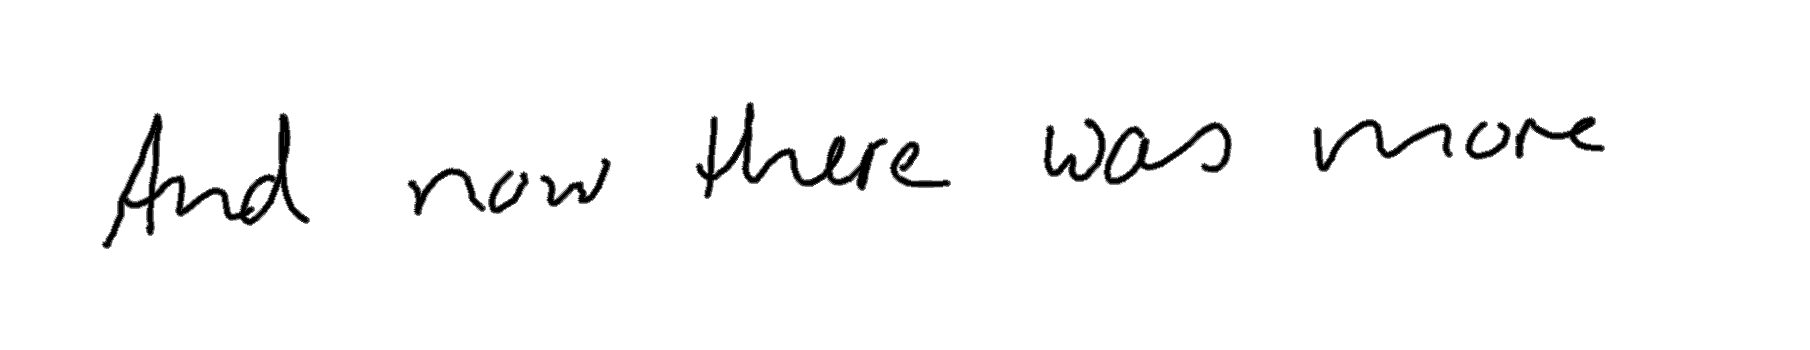 And now there was more